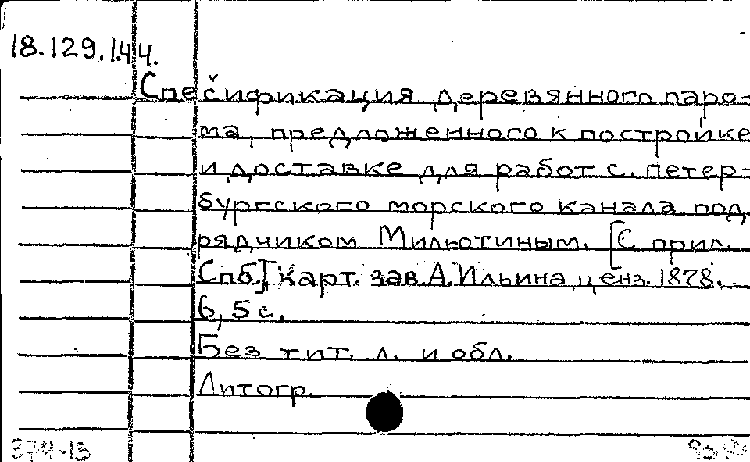 18.129.1.44.
Спецификация деревянного паро-
ма, предложенного к постройке
и доставке для работ с. петер-
бургского морского канала под-
рядчиком Милютиным. [С прил.
Спб.] Карт. зав. А. Ильина, ценз. 1878.
6, 5 с.
Без тит. л. и обл.
Литогр.
374-13